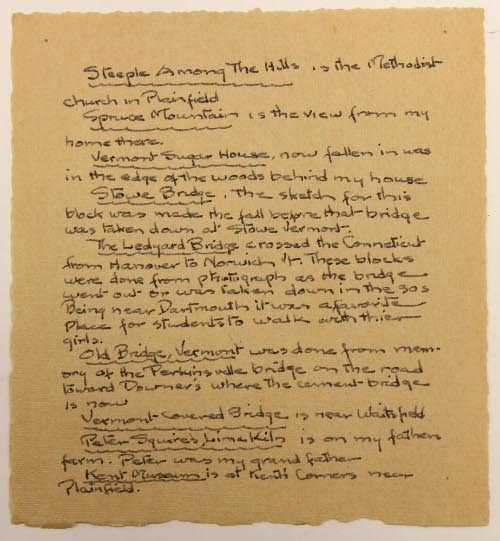 Steeple Among The Hills is the Methodist
church in Plainfield
Spruce Mountain is the view from my
home there.
Vermont Sugar House, now fallen in was
in the edge of the woods behind my house
Stowe Bridge, The sketch for this
block was made the fall before that bridge
was taken down at Stowe Vermont.
The Ledyard Bridge crossed the Conneticut
from Hanover to Norwich Vt. These blocks
were done from photograph as the bridge
went out or was taken down in the 30s
Being near Dartmouth it was a favorite
place for students to walk with thier
girls.
Old Bridge, Vermont was done from mem-
ory of the Perkinsville bridge on the road
toward Downer's where the cement bridge
is now
Vermont Covered Bridge is near Waitsfield
Peter Squires Lime Kiln is on my fathers
farm. Peter was my grand father
Kent Museum is at Kents Corners near
Plainfield.